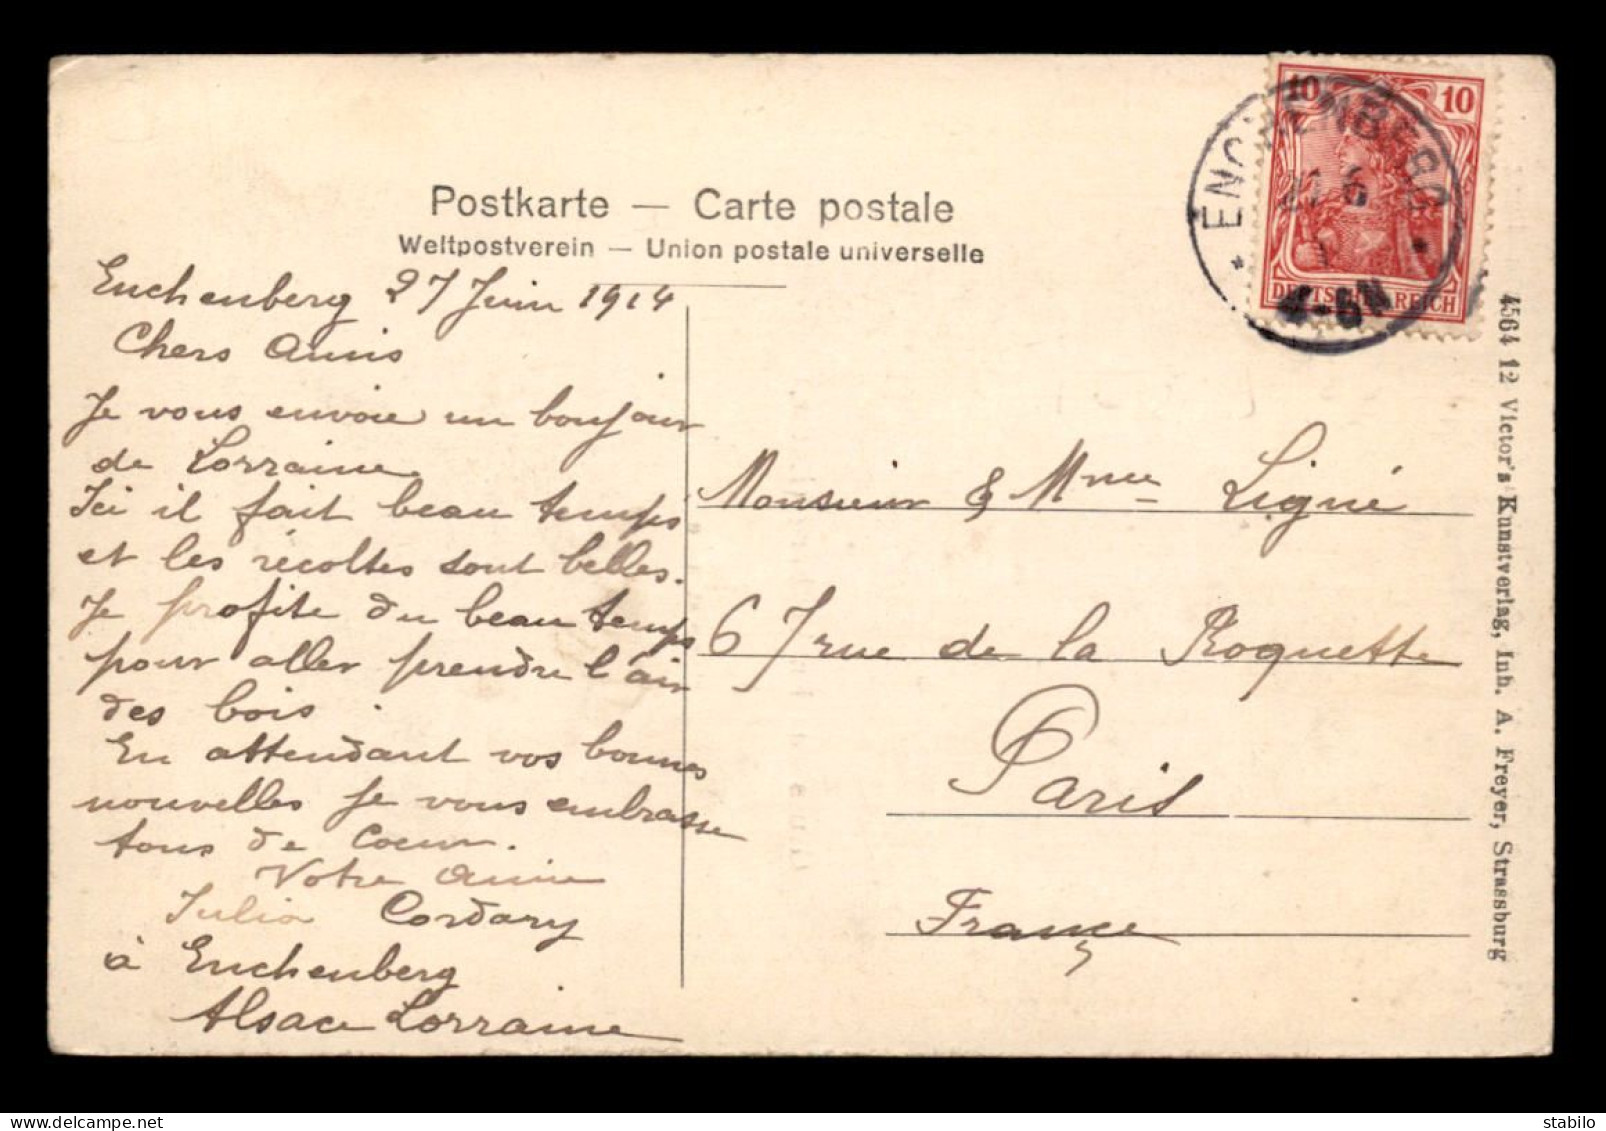 Postkarte — Carte postale
Weltpostverein — Union postale universelle
Enchenberg 27 Juin 1914
Chers Amis
Je vous envoie un bonjour
de Lorraine
Ici il fait beau temps
et les récoltes sont belles.
Je profite du beau temps
pour aller prendre l'air
des bois.
En attendant vos bonnes
nouvelles je vous embrasse
tous de Coeur.
Votre amie
Julia Cordary
à Enchenberg
Alsace Lorraine
10 10
DEUTSCHES REICH
* ENCHENBERG *
27 6
4-5N
Monsieur & Mme Ligné
67 rue de la Roquette
Paris
France
4564 12 Victor's Kunstverlag, Inh. A. Freyer, Strassburg
delcampe.net
stabilo